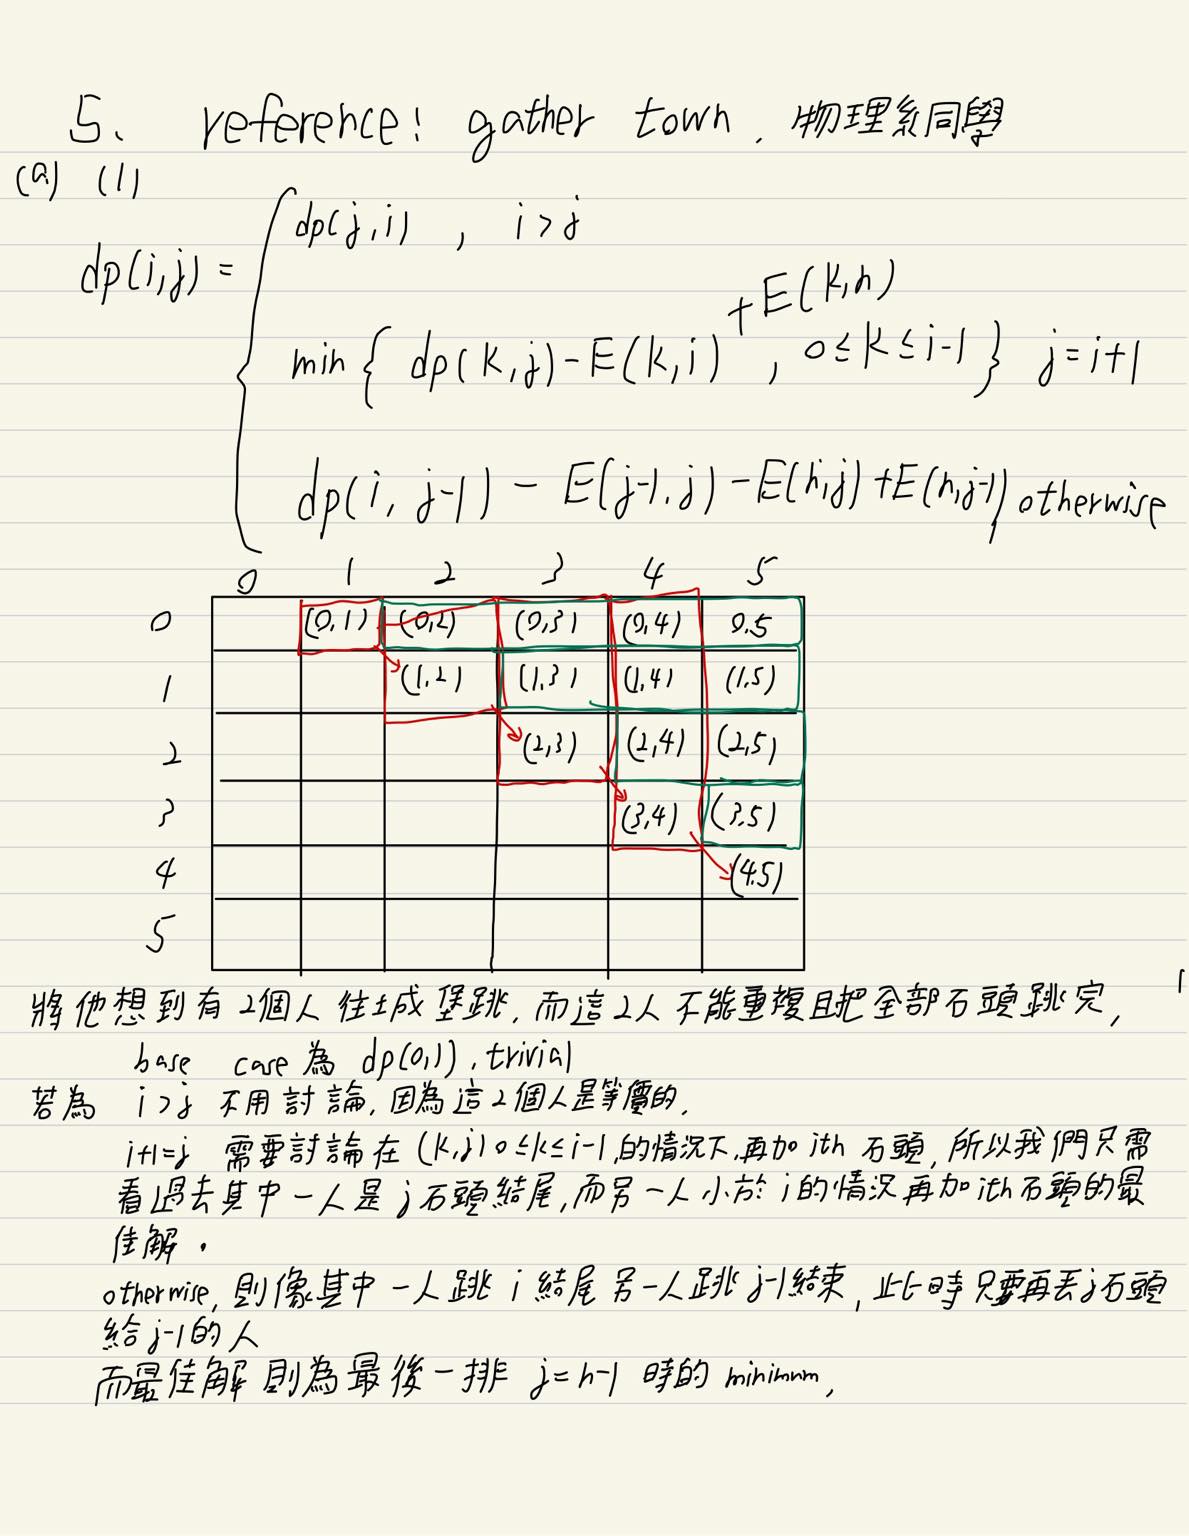 5. reference: gather town, 物理系同學
(a) (1)
dp(i,j) =
dp(j,i) , i>j
min{ dp(k,j)-E(k,i) +E(k,n) , 0≤k≤i-1 } j=i+1
dp(i, j-1) - E(j-1,j) - E(n,j) + E(n,j-1), otherwise
0 1 2 3 4 5
0 (0,1) (0,2) (0,3) (0,4) 0.5
1 (1,2) (1,3) (1,4) (1.5)
2 (2,3) (2,4) (2,5)
3 (3,4) (3.5)
4 (4.5)
5
將他想到有2個人往城堡跳,而這2人不能重複且把全部石頭跳完,
base case 為 dp(0,1), trivial
若為 i>j 不用討論,因為這2個人是等價的,
i+1=j 需要討論在 (k,j) 0≤k≤i-1,的情況下,再加ith 石頭,所以我們只需
看過去其中一人是j石頭結尾,而另一人小於i的情況再加ith石頭的最
佳解.
otherwise, 則像其中一人跳 i 結尾另一人跳 j-1結束,此時只要再丟j石頭
給j-1的人
而最佳解則為最後一排 j=n-1 時的 minimum,